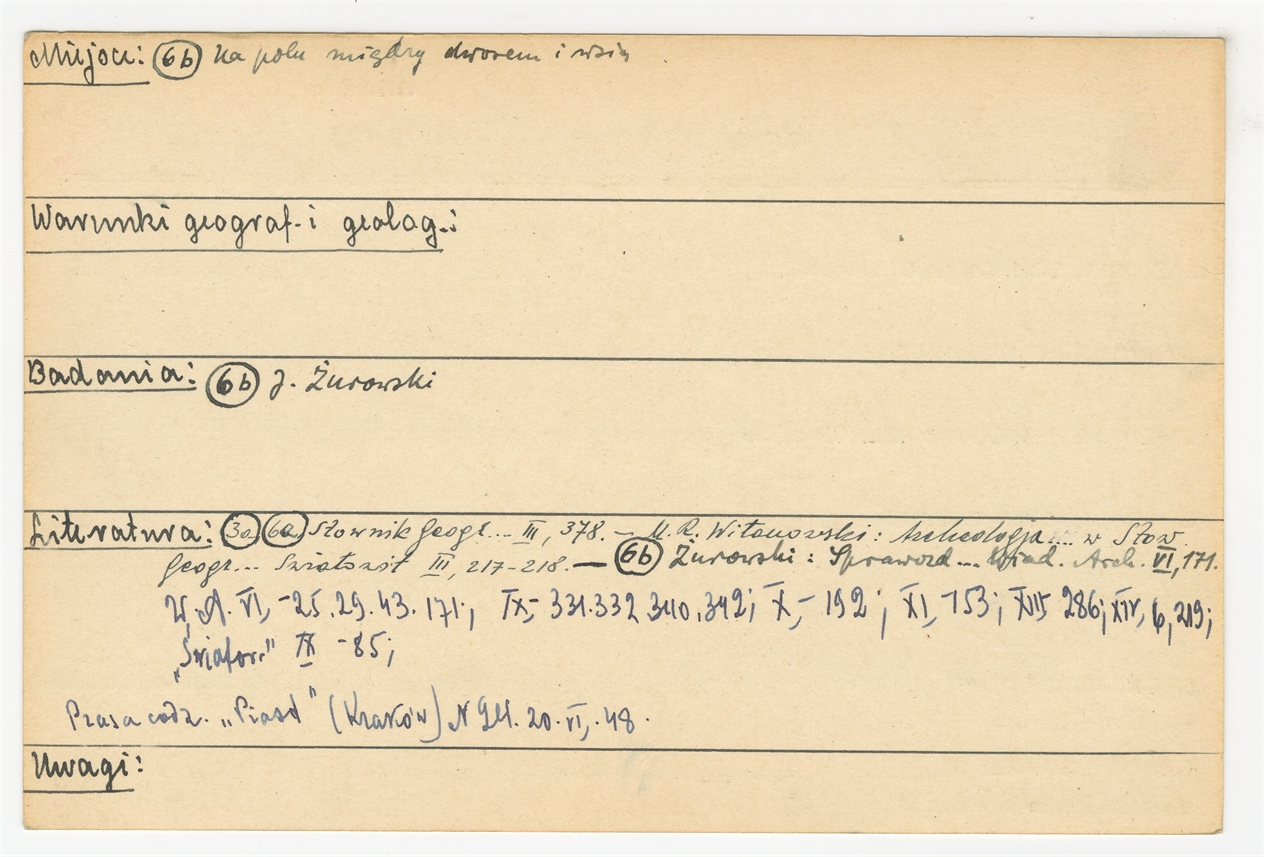 Miejsce: (6b) Na polu między dworem i wsią.
Warunki geograf. i geolog.:
Badania: (6b) J. Żurowski
Literatura: (3a) (6a) Słownik Geogr... III, 378. — M. R. Witanowski: Archeologja ... w Słow.
Geogr... Światowit III, 217-218. — (6b) Żurowski: Sprawozd... Wiad. Arch. VI, 171.
W. A. VI, -25.29.43.171; IX,- 331.332 340.342; X,- 192; XI,-153; 286; XIV, 6, 219;
„Światow." IX -85;
Prasa codz. „Piast" (Kraków) N 20.VI.48.
Uwagi: